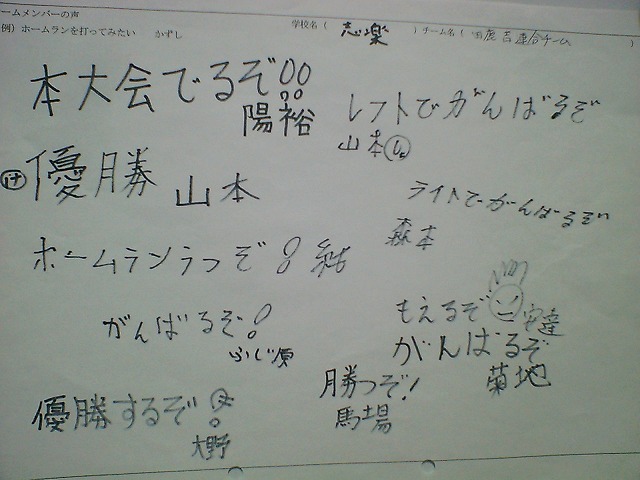 ームメンバーの声
例）ホームランを打ってみたい　かずし
学校名（ 志楽 ）チーム名（ 連合チーム ）
本大会でるぞ!!
陽裕
レフトでがんばるぞ
山本
優勝 山本
ライトでがんばるぞ
森本
ホームランうつぞ! 結
もえるぞ 安達
がんばるぞ!
ふじ原
がんばるぞ
菊地
勝つぞ!
馬場
優勝するぞ!
大野